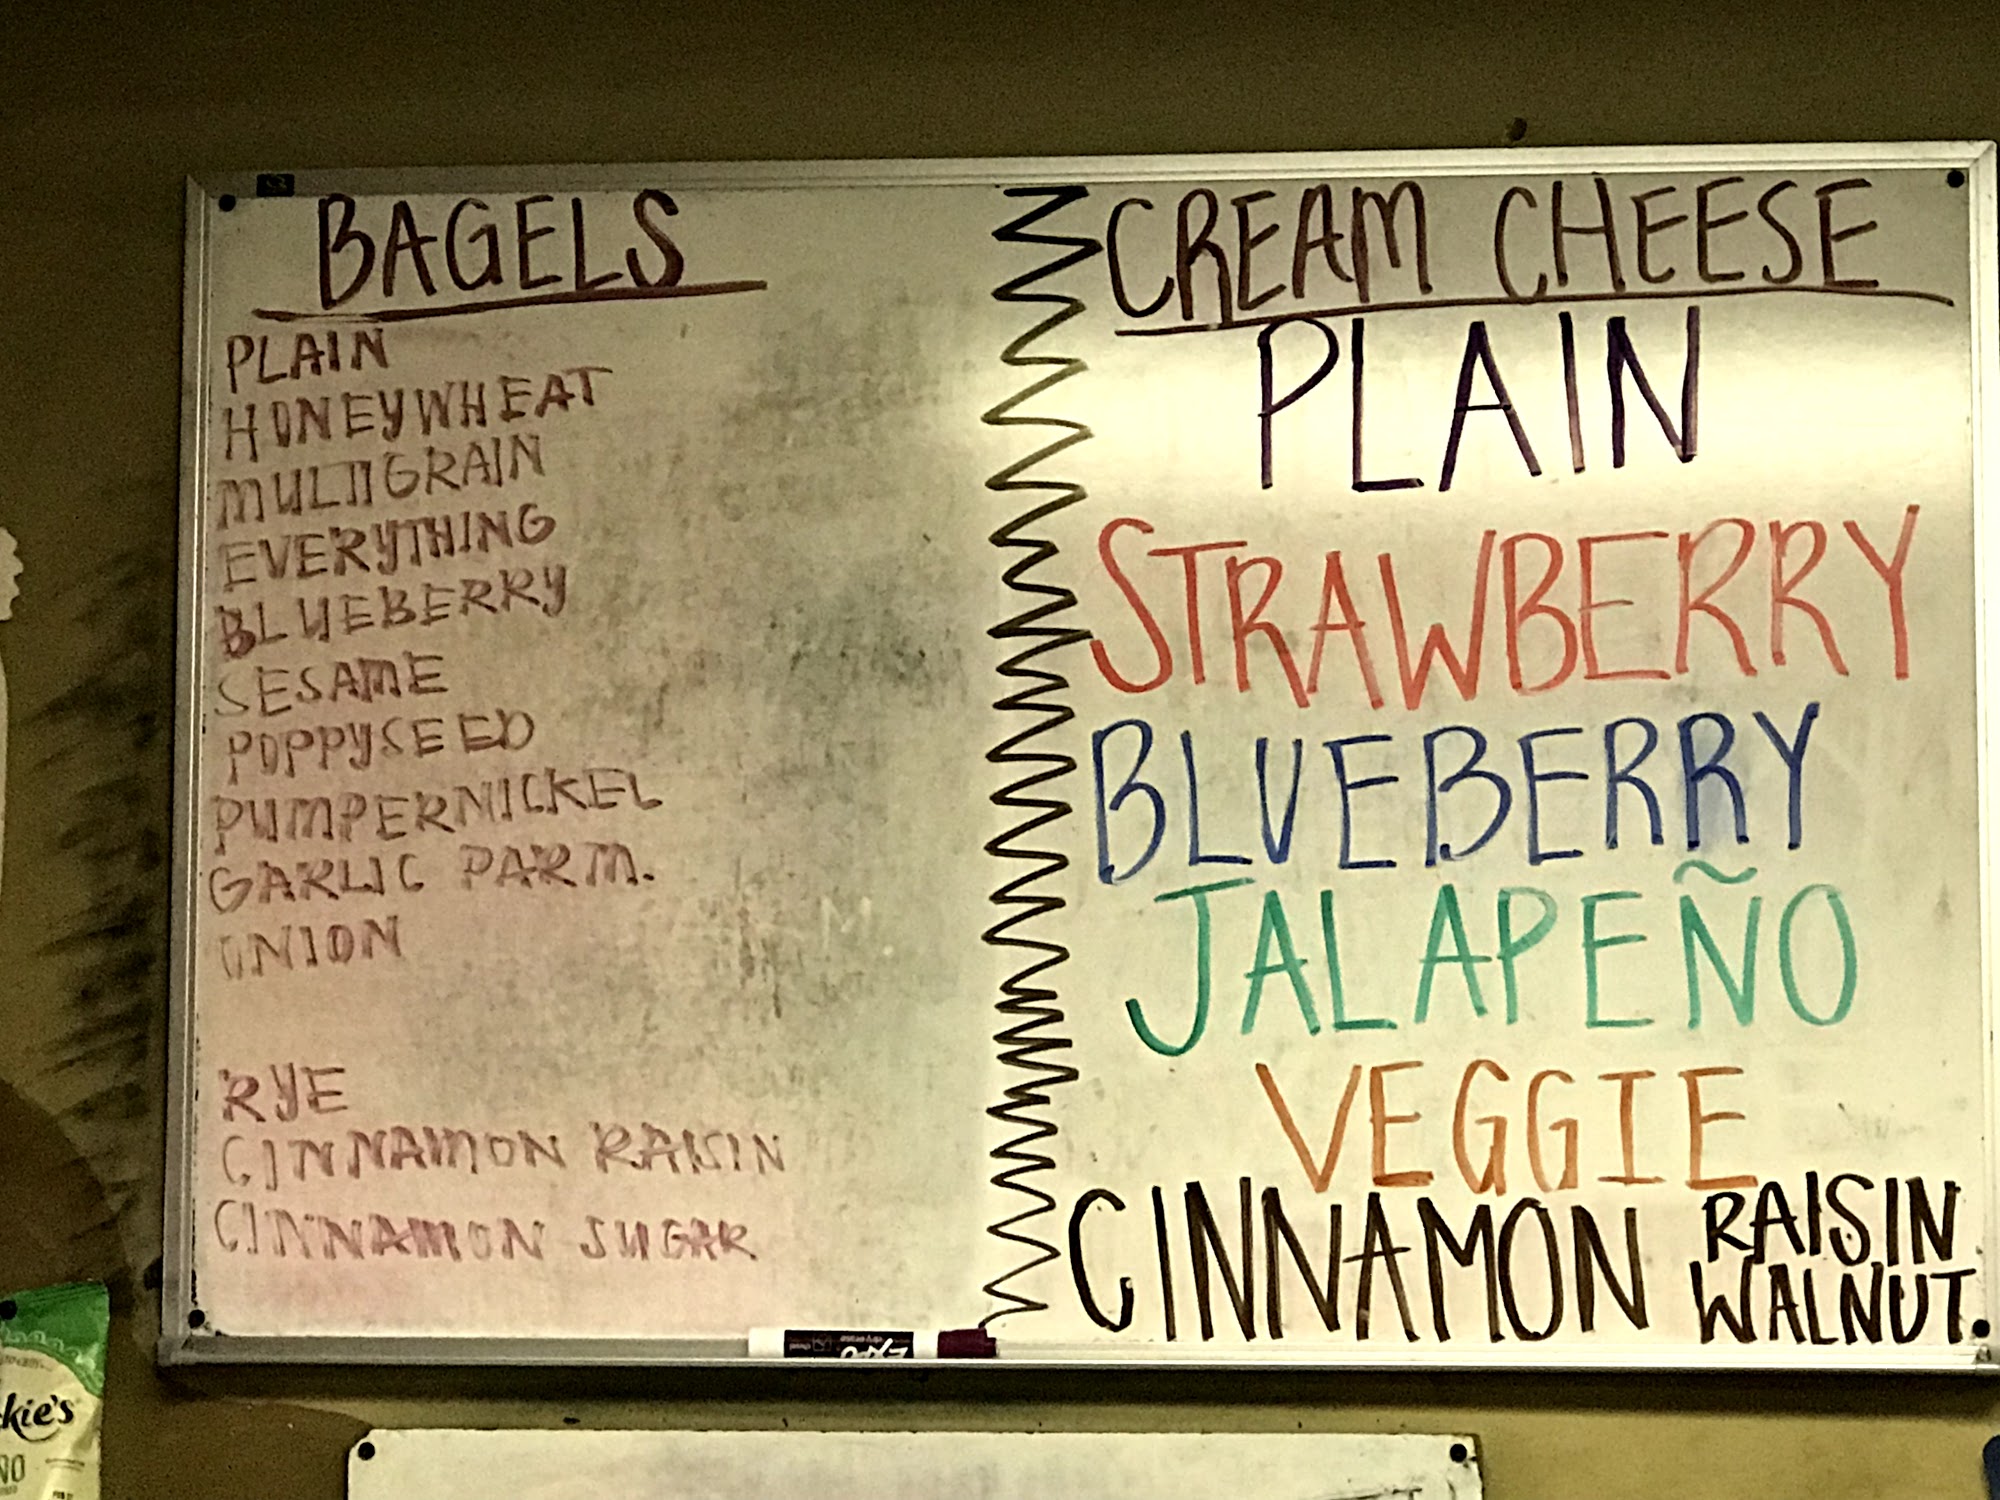 BAGELS
PLAIN
HONEYWHEAT
MULTIGRAIN
EVERYTHING
BLUEBERRY
SESAME
POPPYSEED
PUMPERNICKEL
GARLIC PARM.
ONION
RYE
CINNAMON RAISIN
CINNAMON SUGAR
CREAM CHEESE
PLAIN
STRAWBERRY
BLUEBERRY
JALAPEÑO
VEGGIE
CINNAMON RAISIN
WALNUT
EXPO
kie's
ÑO